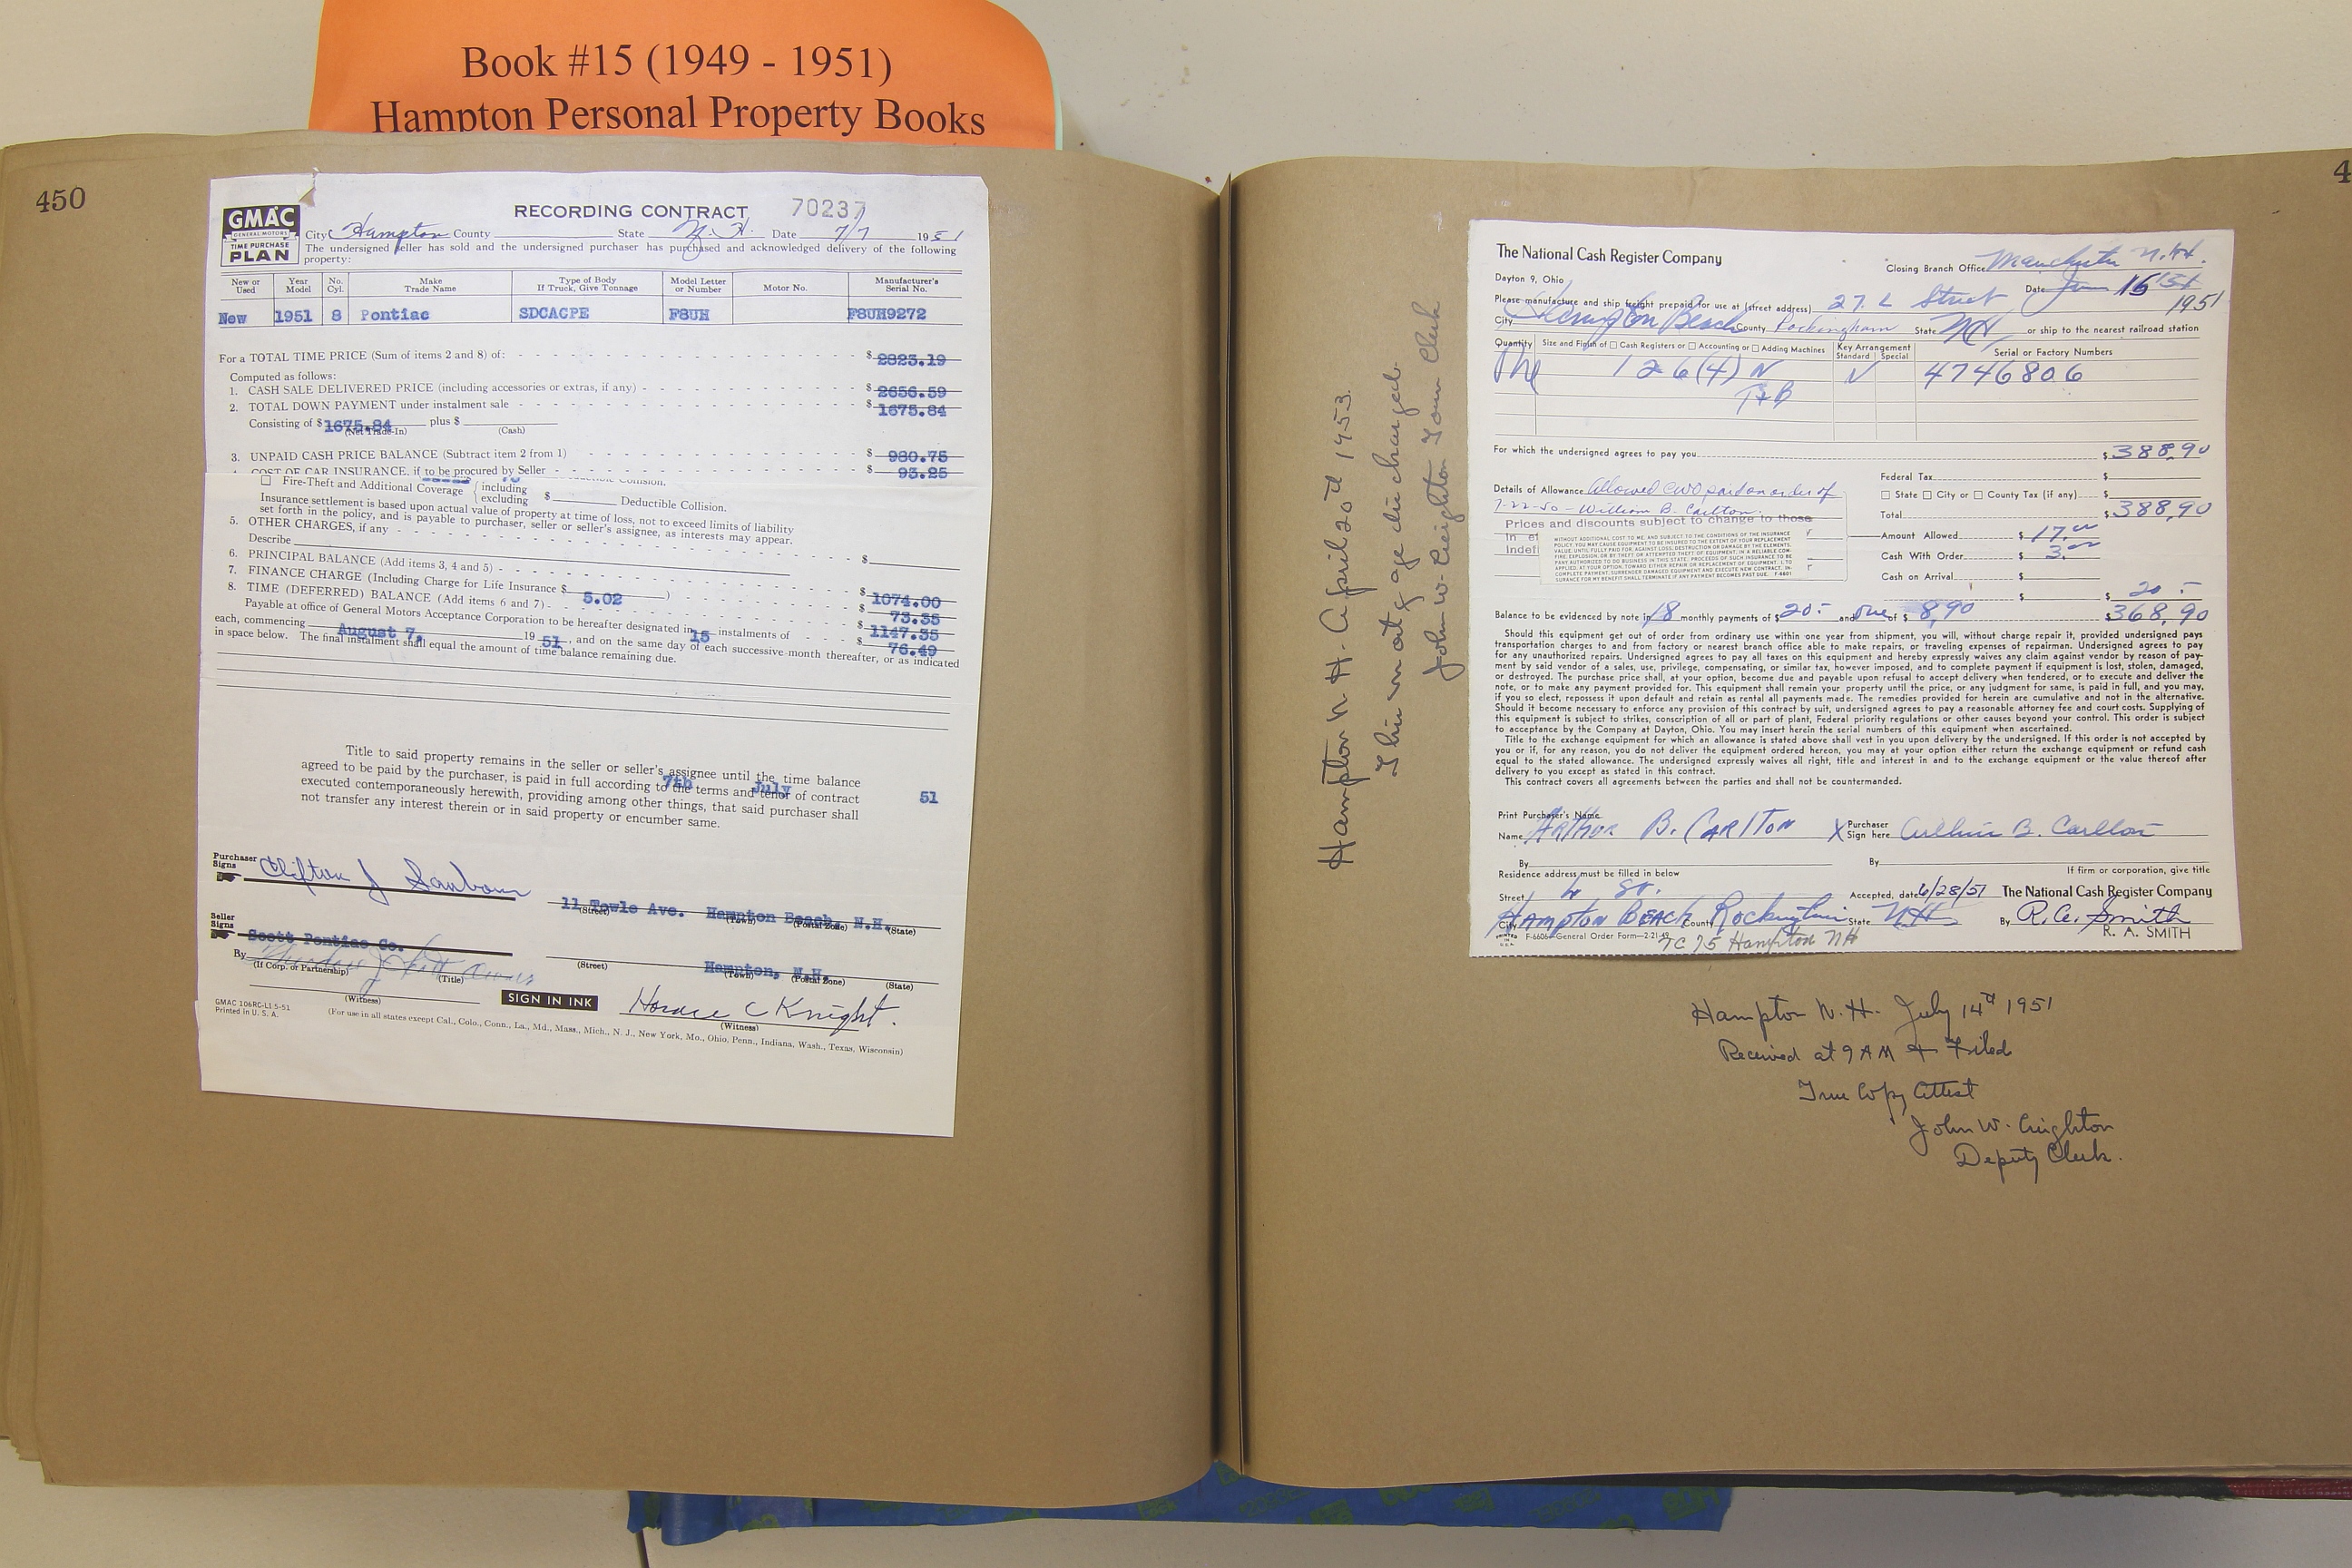 Book #15 (1949 - 1951)
Hampton Personal Property Books
450
GMAC
GENERAL MOTORS
TIME PURCHASE
PLAN
RECORDING CONTRACT 70237
City Hampton County State N.H. Date 7/7 1951
The undersigned seller has sold and the undersigned purchaser has purchased and acknowledged delivery of the following
property:
New or Used Year Model No. Cyl. Make Trade Name Type of Body If Truck, Give Tonnage Model Letter or Number Motor No. Manufacturer's Serial No.
New 1951 8 Pontiac SDCACPE F8UH F8UH9272
For a TOTAL TIME PRICE (Sum of items 2 and 8) of: $ 2823.19
Computed as follows:
1. CASH SALE DELIVERED PRICE (including accessories or extras, if any) $ 2656.59
2. TOTAL DOWN PAYMENT under instalment sale $ 1675.84
Consisting of $ 1675.84 plus $
(Net Trade-In) (Cash)
3. UNPAID CASH PRICE BALANCE (Subtract item 2 from 1) $ 980.75
COST OF CAR INSURANCE, if to be procured by Seller $ 93.25
Fire-Theft and Additional Coverage { including excluding $ Deductible Collision.
Insurance settlement is based upon actual value of property at time of loss, not to exceed limits of liability
set forth in the policy, and is payable to purchaser, seller or seller's assignee, as interests may appear.
5. OTHER CHARGES, if any
Describe $
6. PRINCIPAL BALANCE (Add items 3, 4 and 5) $ 1074.00
7. FINANCE CHARGE (Including Charge for Life Insurance $ 5.02 ) $ 73.35
8. TIME (DEFERRED) BALANCE (Add items 6 and 7) $ 1147.35
Payable at office of General Motors Acceptance Corporation to be hereafter designated in 15 instalments of $ 76.49
each, commencing August 7, 19 51, and on the same day of each successive month thereafter, or as indicated
in space below. The final instalment shall equal the amount of time balance remaining due.
Title to said property remains in the seller or seller's assignee until the time balance
agreed to be paid by the purchaser, is paid in full according to the terms and tenor of contract
7th July 51
executed contemporaneously herewith, providing among other things, that said purchaser shall
not transfer any interest therein or in said property or encumber same.
Purchaser Signs Clifton J Sanborn
11 Towle Ave. Hampton Beach, N.H.
(Street) (Town) (Postal Zone) (State)
Seller Signs Scott Pontiac Co.
By Scott owner
(If Corp. or Partnership) (Title)
Hampton, N.H.
(Street) (Town) (Postal Zone) (State)
(Witness) SIGN IN INK Horace C Knight.
(Witness)
GMAC 106RC-L1 5-51
Printed in U. S. A.
(For use in all states except Cal., Colo., Conn., La., Md., Mass., Mich., N. J., New York, Mo., Ohio, Penn., Indiana, Wash., Texas, Wisconsin)
4
Hampton N. H. April 20th 1953.
This mortgage discharged
John W. Creighton Town Clerk
The National Cash Register Company
Closing Branch Office Manchester N.H.
Dayton 9, Ohio
Date June 16 1951
Please manufacture and ship freight prepaid for use at (street address) 27 L Street
City Hampton Beach County Rockingham State NH or ship to the nearest railroad station
Quantity Size and Finish of Cash Registers or Accounting or Adding Machines Key Arrangement Standard Special Serial or Factory Numbers
One 126(4) N 4746806
T+B
For which the undersigned agrees to pay you $ 388.90
Federal Tax $
Details of Allowance Allowed CWO paid on order of
State City or County Tax (if any) $
7-22-50 - William B. Carlton.
Total $ 388.90
Prices and discounts subject to change to those
Amount Allowed $ 17.00
WITHOUT ADDITIONAL COST TO ME, AND SUBJECT TO THE CONDITIONS OF THE INSURANCE
POLICY, YOU MAY CAUSE EQUIPMENT TO BE INSURED TO THE EXTENT OF YOUR REPLACEMENT
VALUE, UNTIL FULLY PAID FOR, AGAINST LOSS, DESTRUCTION OR DAMAGE BY THE ELEMENTS,
FIRE, EXPLOSION, OR BY THEFT OR ATTEMPTED THEFT OF EQUIPMENT, IN A RELIABLE COM-
PANY AUTHORIZED TO DO BUSINESS IN THIS STATE. PROCEEDS OF SUCH INSURANCE TO BE
APPLIED, AT YOUR OPTION, TOWARD EITHER REPAIR OR REPLACEMENT OF EQUIPMENT. I, TO
COMPLETE PAYMENT, SURRENDER DAMAGED EQUIPMENT AND EXECUTE NEW CONTRACT. IN-
SURANCE FOR MY BENEFIT SHALL TERMINATE IF ANY PAYMENT BECOMES PAST DUE. F-6601
Cash With Order $ 3.00
Cash on Arrival $
$ 20.-
Balance to be evidenced by note in 18 monthly payments of $ 20.- and one of $ 8.90 $ 368.90
Should this equipment get out of order from ordinary use within one year from shipment, you will, without charge repair it, provided undersigned pays
transportation charges to and from factory or nearest branch office able to make repairs, or traveling expenses of repairman. Undersigned agrees to pay
for any unauthorized repairs. Undersigned agrees to pay all taxes on this equipment and hereby expressly waives any claim against vendor by reason of pay-
ment by said vendor of a sales, use, privilege, compensating, or similar tax, however imposed, and to complete payment if equipment is lost, stolen, damaged,
or destroyed. The purchase price shall, at your option, become due and payable upon refusal to accept delivery when tendered, or to execute and deliver the
note, or to make any payment provided for. This equipment shall remain your property until the price, or any judgment for same, is paid in full, and you may,
if you so elect, repossess it upon default and retain as rental all payments made. The remedies provided for herein are cumulative and not in the alternative.
Should it become necessary to enforce any provision of this contract by suit, undersigned agrees to pay a reasonable attorney fee and court costs. Supplying of
this equipment is subject to strikes, conscription of all or part of plant, Federal priority regulations or other causes beyond your control. This order is subject
to acceptance by the Company at Dayton, Ohio. You may insert herein the serial numbers of this equipment when ascertained.
Title to the exchange equipment for which an allowance is stated above shall vest in you upon delivery by the undersigned. If this order is not accepted by
you or if, for any reason, you do not deliver the equipment ordered hereon, you may at your option either return the exchange equipment or refund cash
equal to the stated allowance. The undersigned expressly waives all right, title and interest in and to the exchange equipment or the value thereof after
delivery to you except as stated in this contract.
This contract covers all agreements between the parties and shall not be countermanded.
Print Purchaser's Name
Name Arthur B. Carlton X Purchaser Sign here Arthur B. Carlton
By By
If firm or corporation, give title
Residence address must be filled in below
Street L St. Accepted, date 6/28/51 The National Cash Register Company
City Hampton Beach County Rockingham State NH By R. A. Smith
R. A. SMITH
PRINTED IN U.S.A. F-6606 General Order Form—2-21-49 TC 75 Hampton NH
Hampton N. H. July 14th 1951
Received at 9 AM & Filed
True Copy Attest
John W. Creighton
Deputy Clerk.